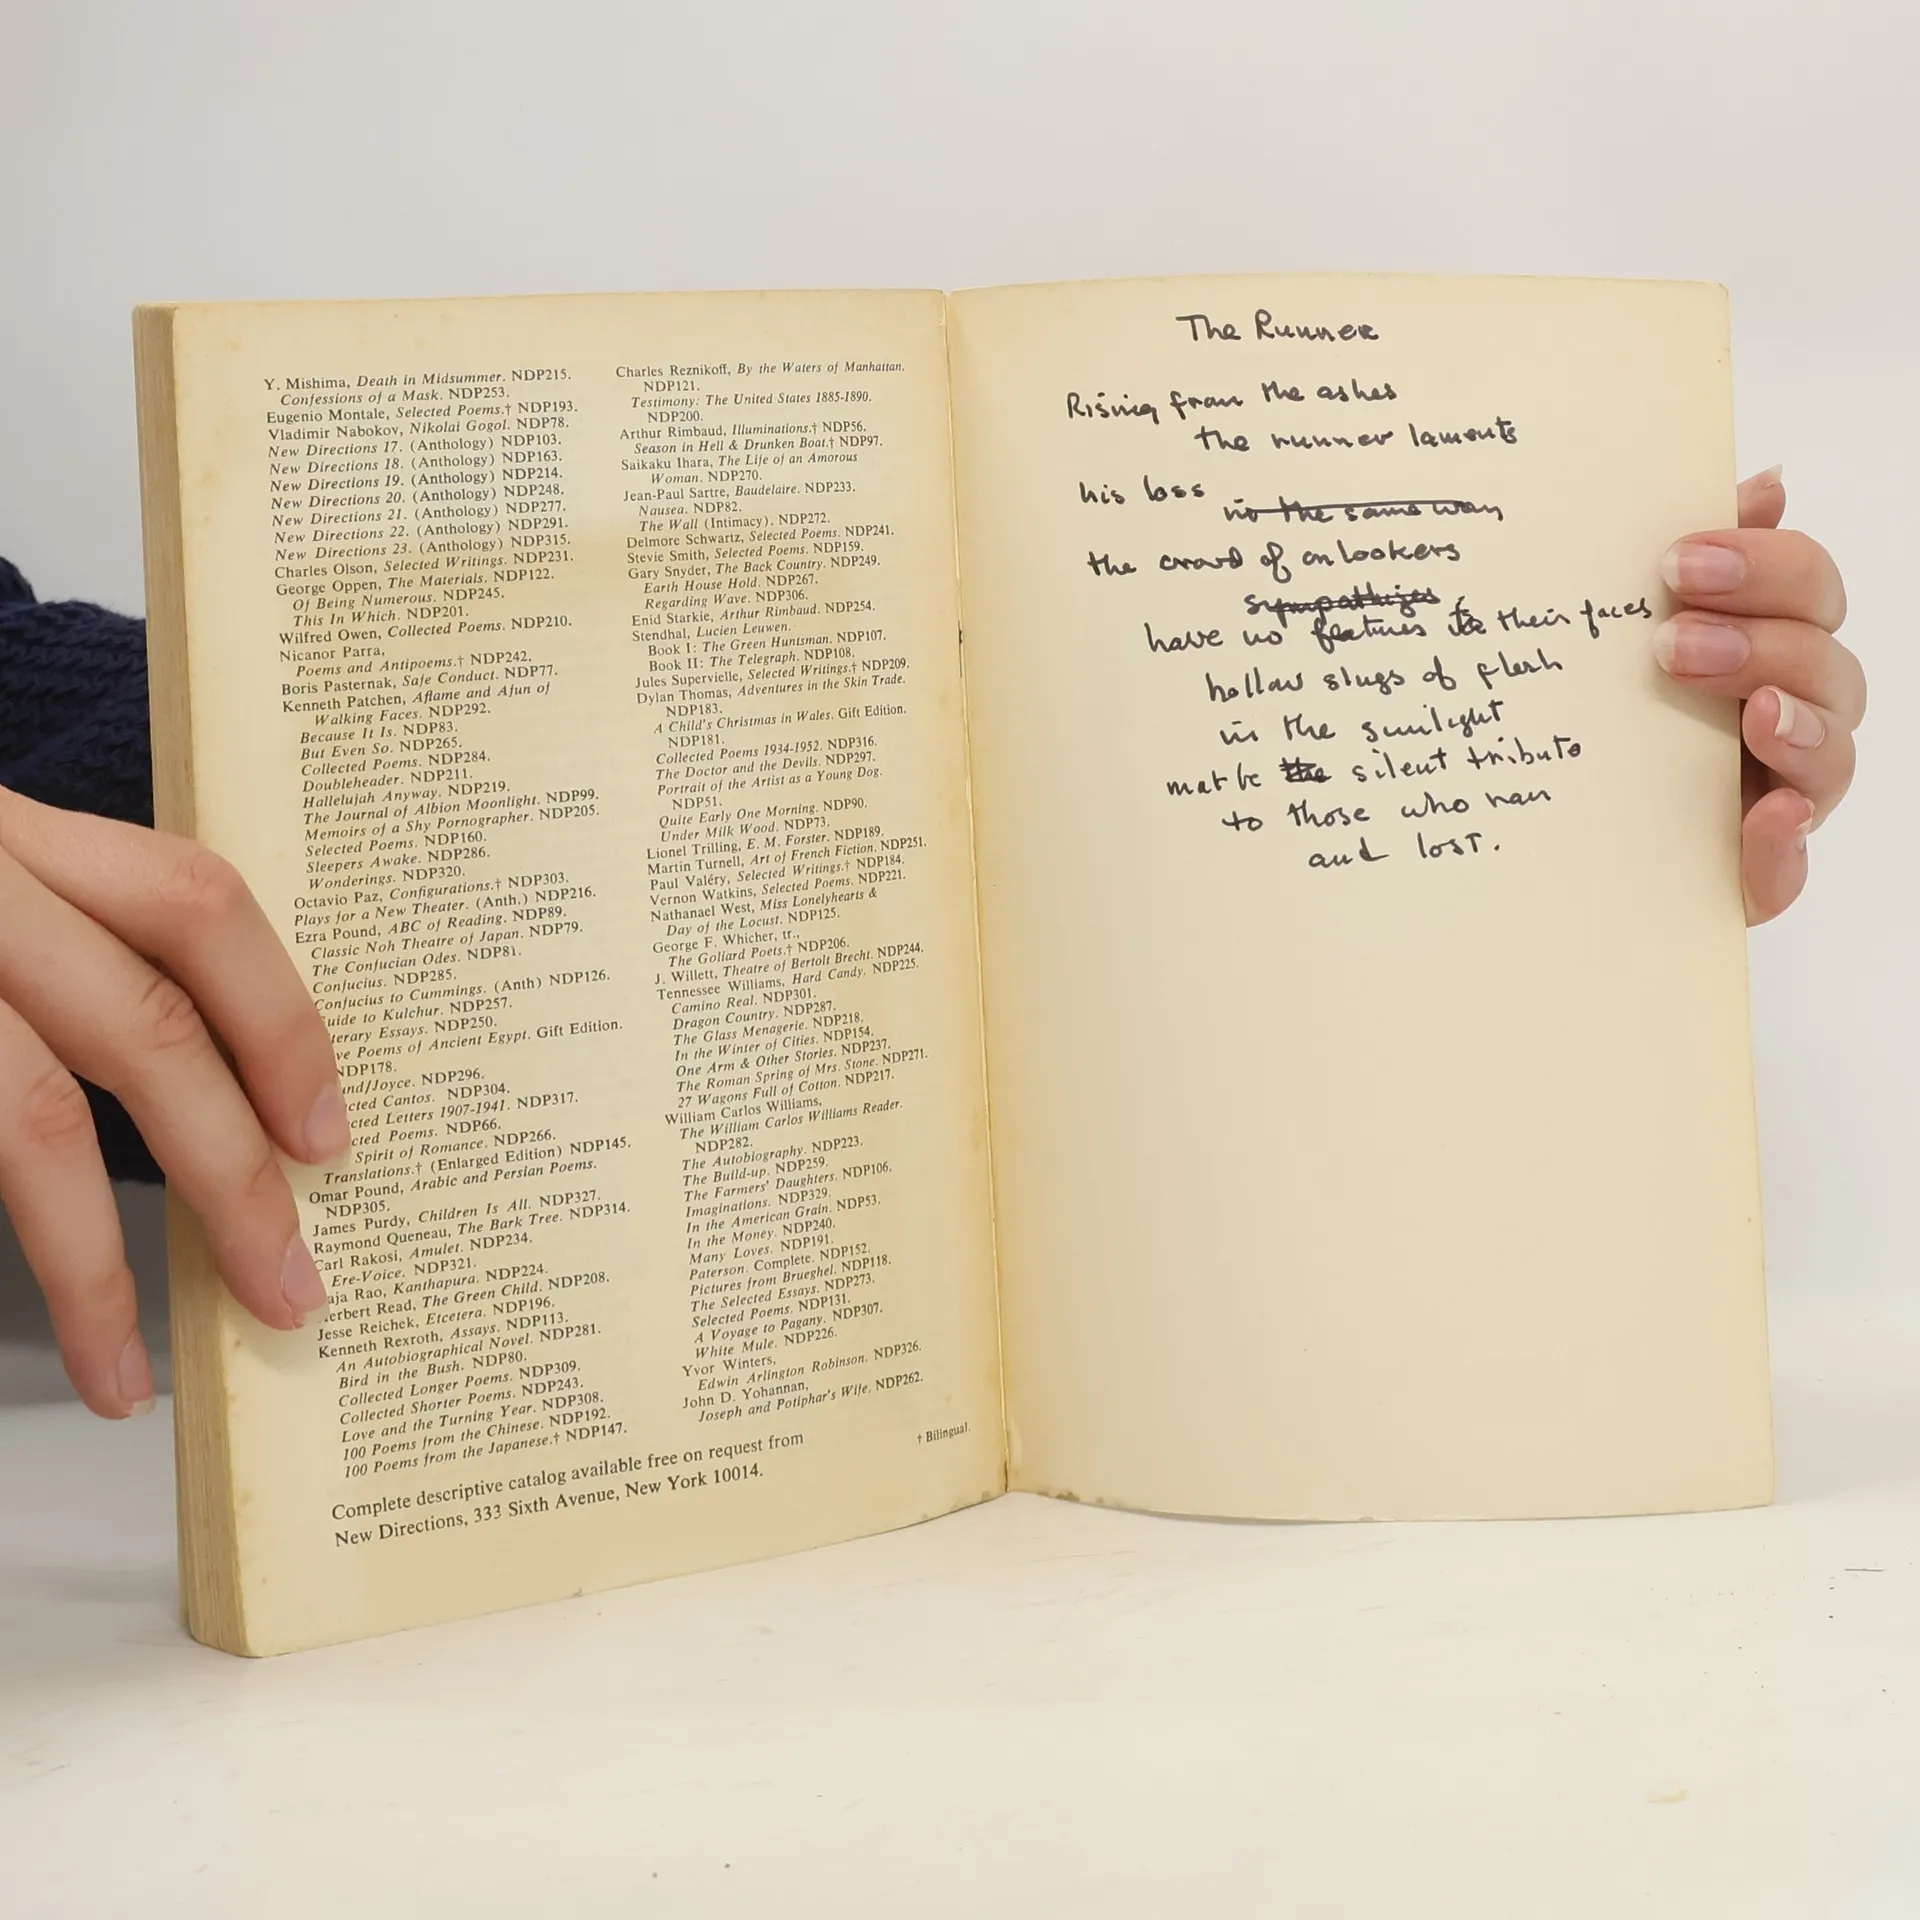 Y. Mishima, Death in Midsummer. NDP215.
Confessions of a Mask. NDP253.
Eugenio Montale, Selected Poems.† NDP193.
Vladimir Nabokov, Nikolai Gogol. NDP78.
New Directions 17. (Anthology) NDP103.
New Directions 18. (Anthology) NDP163.
New Directions 19. (Anthology) NDP214.
New Directions 20. (Anthology) NDP248.
New Directions 21. (Anthology) NDP277.
New Directions 22. (Anthology) NDP291.
New Directions 23. (Anthology) NDP315.
Charles Olson, Selected Writings. NDP231.
George Oppen, The Materials. NDP122.
Of Being Numerous. NDP245.
This In Which. NDP201.
Wilfred Owen, Collected Poems. NDP210.
Nicanor Parra,
Poems and Antipoems.† NDP242.
Boris Pasternak, Safe Conduct. NDP77.
Kenneth Patchen, Aflame and Afun of
Walking Faces. NDP292.
Because It Is. NDP83.
But Even So. NDP265.
Collected Poems. NDP284.
Doubleheader. NDP211.
Hallelujah Anyway. NDP219.
The Journal of Albion Moonlight. NDP99.
Memoirs of a Shy Pornographer. NDP205.
Selected Poems. NDP160.
Sleepers Awake. NDP286.
Wonderings. NDP320.
Octavio Paz, Configurations.† NDP303.
Plays for a New Theater. (Anth.) NDP216.
Ezra Pound, ABC of Reading. NDP89.
Classic Noh Theatre of Japan. NDP79.
The Confucian Odes. NDP81.
Confucius. NDP285.
Confucius to Cummings. (Anth) NDP126.
uide to Kulchur. NDP257.
terary Essays. NDP250.
ve Poems of Ancient Egypt. Gift Edition.
NDP178.
und/Joyce. NDP296.
cted Cantos. NDP304.
cted Letters 1907-1941. NDP317.
cted Poems. NDP66.
Spirit of Romance. NDP266.
Translations.† (Enlarged Edition) NDP145.
Omar Pound, Arabic and Persian Poems.
NDP305.
James Purdy, Children Is All. NDP327.
Raymond Queneau, The Bark Tree. NDP314.
Carl Rakosi, Amulet. NDP234.
Ere-Voice. NDP321.
aja Rao, Kanthapura. NDP224.
erbert Read, The Green Child. NDP208.
Jesse Reichek, Etcetera. NDP196.
Kenneth Rexroth, Assays. NDP113.
An Autobiographical Novel. NDP281.
Bird in the Bush. NDP80.
Collected Longer Poems. NDP309.
Collected Shorter Poems. NDP243.
Love and the Turning Year. NDP308.
100 Poems from the Chinese. NDP192.
100 Poems from the Japanese.† NDP147.
Charles Reznikoff, By the Waters of Manhattan.
NDP121.
Testimony: The United States 1885-1890.
NDP200.
Arthur Rimbaud, Illuminations.† NDP56.
Season in Hell & Drunken Boat.† NDP97.
Saikaku Ihara, The Life of an Amorous
Woman. NDP270.
Jean-Paul Sartre, Baudelaire. NDP233.
Nausea. NDP82.
The Wall (Intimacy). NDP272.
Delmore Schwartz, Selected Poems. NDP241.
Stevie Smith, Selected Poems. NDP159.
Gary Snyder, The Back Country. NDP249.
Earth House Hold. NDP267.
Regarding Wave. NDP306.
Enid Starkie, Arthur Rimbaud. NDP254.
Stendhal, Lucien Leuwen.
Book I: The Green Huntsman. NDP107.
Book II: The Telegraph. NDP108.
Jules Supervielle, Selected Writings.† NDP209.
Dylan Thomas, Adventures in the Skin Trade.
NDP183.
A Child's Christmas in Wales. Gift Edition.
NDP181.
Collected Poems 1934-1952. NDP316.
The Doctor and the Devils. NDP297.
Portrait of the Artist as a Young Dog.
NDP51.
Quite Early One Morning. NDP90.
Under Milk Wood. NDP73.
Lionel Trilling, E. M. Forster. NDP189.
Martin Turnell, Art of French Fiction. NDP251.
Paul Valéry, Selected Writings.† NDP184.
Vernon Watkins, Selected Poems. NDP221.
Nathanael West, Miss Lonelyhearts &
Day of the Locust. NDP125.
George F. Whicher, tr.,
The Goliard Poets.† NDP206.
J. Willett, Theatre of Bertolt Brecht. NDP244.
Tennessee Williams, Hard Candy. NDP225.
Camino Real. NDP301.
Dragon Country. NDP287.
The Glass Menagerie. NDP218.
In the Winter of Cities. NDP154.
One Arm & Other Stories. NDP237.
The Roman Spring of Mrs. Stone. NDP271.
27 Wagons Full of Cotton. NDP217.
William Carlos Williams,
The William Carlos Williams Reader.
NDP282.
The Autobiography. NDP223.
The Build-up. NDP259.
The Farmers' Daughters. NDP106.
Imaginations. NDP329.
In the American Grain. NDP53.
In the Money. NDP240.
Many Loves. NDP191.
Paterson. Complete. NDP152.
Pictures from Brueghel. NDP118.
The Selected Essays. NDP273.
Selected Poems. NDP131.
A Voyage to Pagany. NDP307.
White Mule. NDP226.
Yvor Winters,
Edwin Arlington Robinson. NDP326.
John D. Yohannan,
Joseph and Potiphar's Wife. NDP262.
† Bilingual.
Complete descriptive catalog available free on request from
New Directions, 333 Sixth Avenue, New York 10014.
The Runner
Rising from the ashes
the runner laments
his loss
in the same way
the crowd of onlookers
sympathizes
have no features to their faces
hollow slugs of flesh
in the sunlight
make the silent tribute
to those who ran
and lost.